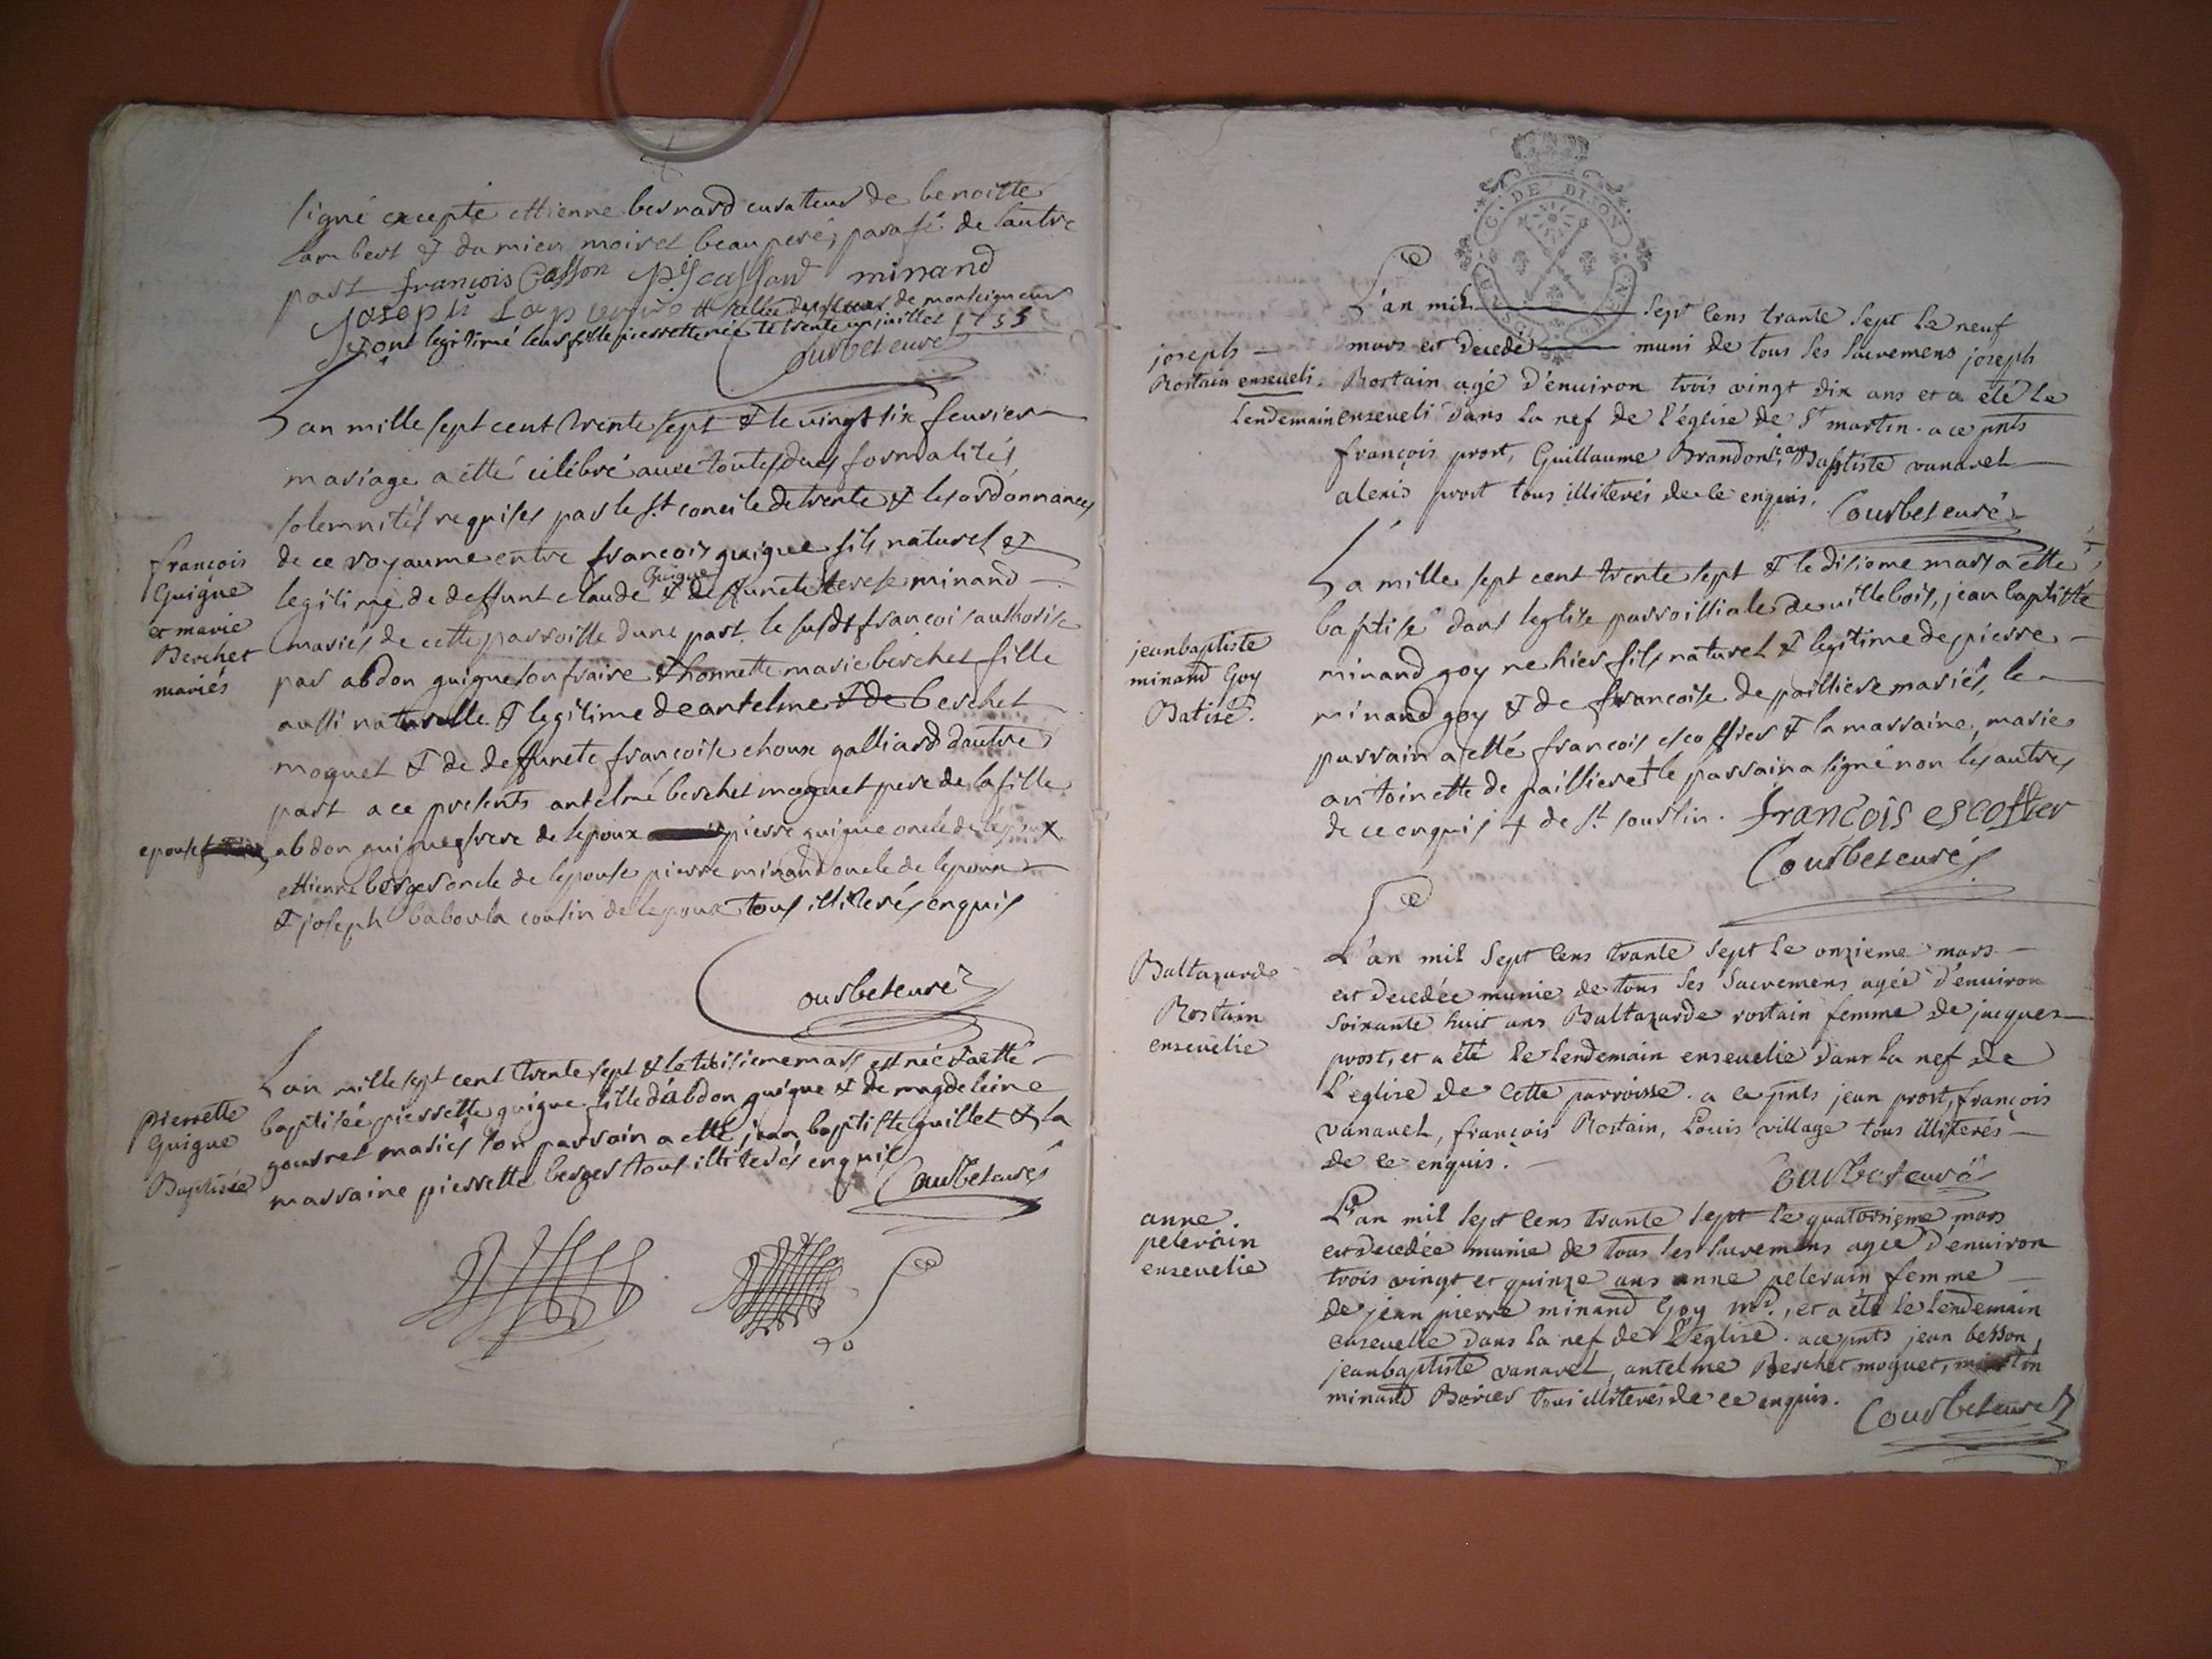 signé excepté ettienne bernard curateur de benoitte
Lambert & damien moiret beaupere, parafé de lautre
part françois Casson minand
Joseph
ont legitimé leur fille pierrette née le trente un juillet 1735
Courbeteure
Lan mille sept cent trente sept & le vingt six feurier
mariage a etté célébré auec toutes dues formalités
solemnités requises par le st concile de trente & les ordonnances
françois
Guigue
et marie
Berchet
mariés
de ce royaume entre francois guigue fils naturel et
legitime de deffunt claude Guigue & deffuncte terese minand
mariés de cette parroisse dune part. le susdt francois authorisé
par abdon guigue son fraire & honnette marie berchet fille
aussi naturelle & legitime de antelme & de berchet
moguet & de deffuncte francoise choux galliard dautre
part a ce presents antelme berchet moguet pere de la fille
epouse
abdon guigue frere de lepoux pierre guigue oncle de lepoux
ettienne berger oncle de lepouse pierre minand oncle de lepoux
& joseph babola cousin de lepoux tous illiterés enquis
Courbeteure
Lan mille sept cent trente sept & le troisieme mars est née & a etté
Pierrette
Guigue
Baptisée
baptisée pierrette guigue fille d'abdon guigue & de magdeleine
gourret mariés son parrain a etté jean baptiste guillet & la
marraine pierrette berger tous illiterés enquis
Courbeteure
G. DE DIJON
L'an mil sept cens trante sept le neuf
joseph
Rostain enseueli.
mars est decedé muni de tous ses sacremens joseph
Rostain agé d'enuiron trois vingt dix ans et a été le
lendemain enseueli dans la nef de l'église de St martin. a ce pnts
françois prost, Guillaume Brandon, jean Baptiste vanarel
alexis prost tous illiterés de ce enquis.
Courbeteure
La mille sept cent trente sept & le disieme mars a etté
baptisé dans leglise parroissiale de uillebois, jean baptiste
jeanbaptiste
minand Goy
Batisé.
minand goy ne hier fils naturel & legitime de pierre
minand goy & de francoise de pailliere mariés, le
parrain a etté francois escoffier & la marraine, marie
antoinette de pailliere + le parrain a signé non les autres
de ce enquis + de St sourlin. françois escoffier
Courbeteure
L'an mil sept cens trante sept le onzieme mars
Baltazarde
Rostain
enseuelie
est decedée munie de tous ses sacremens agée d'enuiron
soixante huit ans Baltazarde rostain femme de jacques
prost, et a été le lendemain enseuelie dans la nef de
l'eglise de cette parroisse. a ce pnts jean prost, françois
vanarel, françois Rostain, Louis village tous illiterés
de ce enquis.
Courbeteure
anne
pelerain
enseuelie
L'an mil sept cens trante sept le quatorzieme mars
est decedée munie de tous ses sacremens agée d'enuiron
trois vingt et quinze ans anne pelerain femme
de jean pierre minand Goy md., et a été le lendemain
enseuelie dans la nef de l'église. a ce pnts jean besson,
jeanbaptiste vanarel, antelme Berchet moguet, martin
minand tous illiterés de ce enquis.
Courbeteure